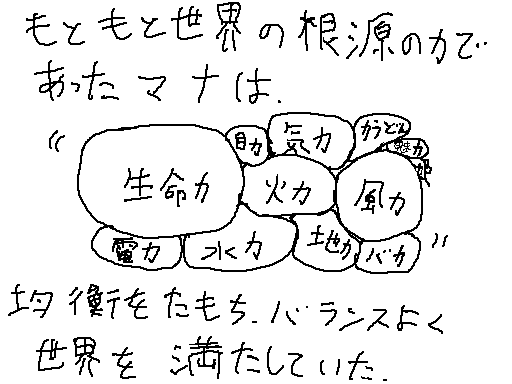 もともと世界の根源の力で
あったマナは、
自力 気力 力うどん
魅力
生命力 火力 風力
電力 水力 土地力 バカ
均衡をたもち、バランスよく
世界を満たしていた。